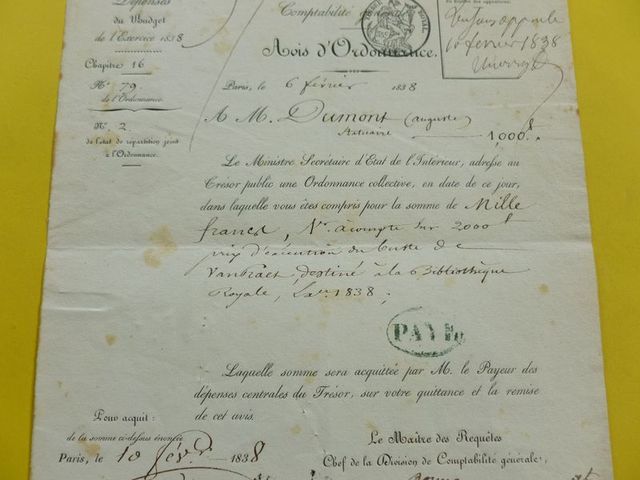 Dépenses
du Budget
de l'Exercice 1838
Chapitre 16
N.° 79.
de l'Ordonnance.
N.° 2
de l'état de répartition joint
à l'Ordonnance.
Comptabilité
Avis d'Ordonnance.
10 février 1838
Paris, le 6 février 1838
A M. Dumont (auguste)
Statuaire 1,000 f
Le Ministre Secrétaire d'État de l'Intérieur, adresse au
Trésor public une Ordonnance collective, en date de ce jour,
dans laquelle vous êtes compris pour la somme de Mille
francs, acompte sur 2000 f
prix d'exécution du buste de
Vanbraet, destiné à la Bibliothèque
Royale, 1838;
PAYÉ
Laquelle somme sera acquittée par M. le Payeur des
dépenses centrales du Trésor, sur votre quittance et la remise
de cet avis.
Pour acquit:
de la somme ci-dessus énoncée
Paris, le 10 févr. 1838
Le Maître des Requêtes
Chef de la Division de Comptabilité générale,